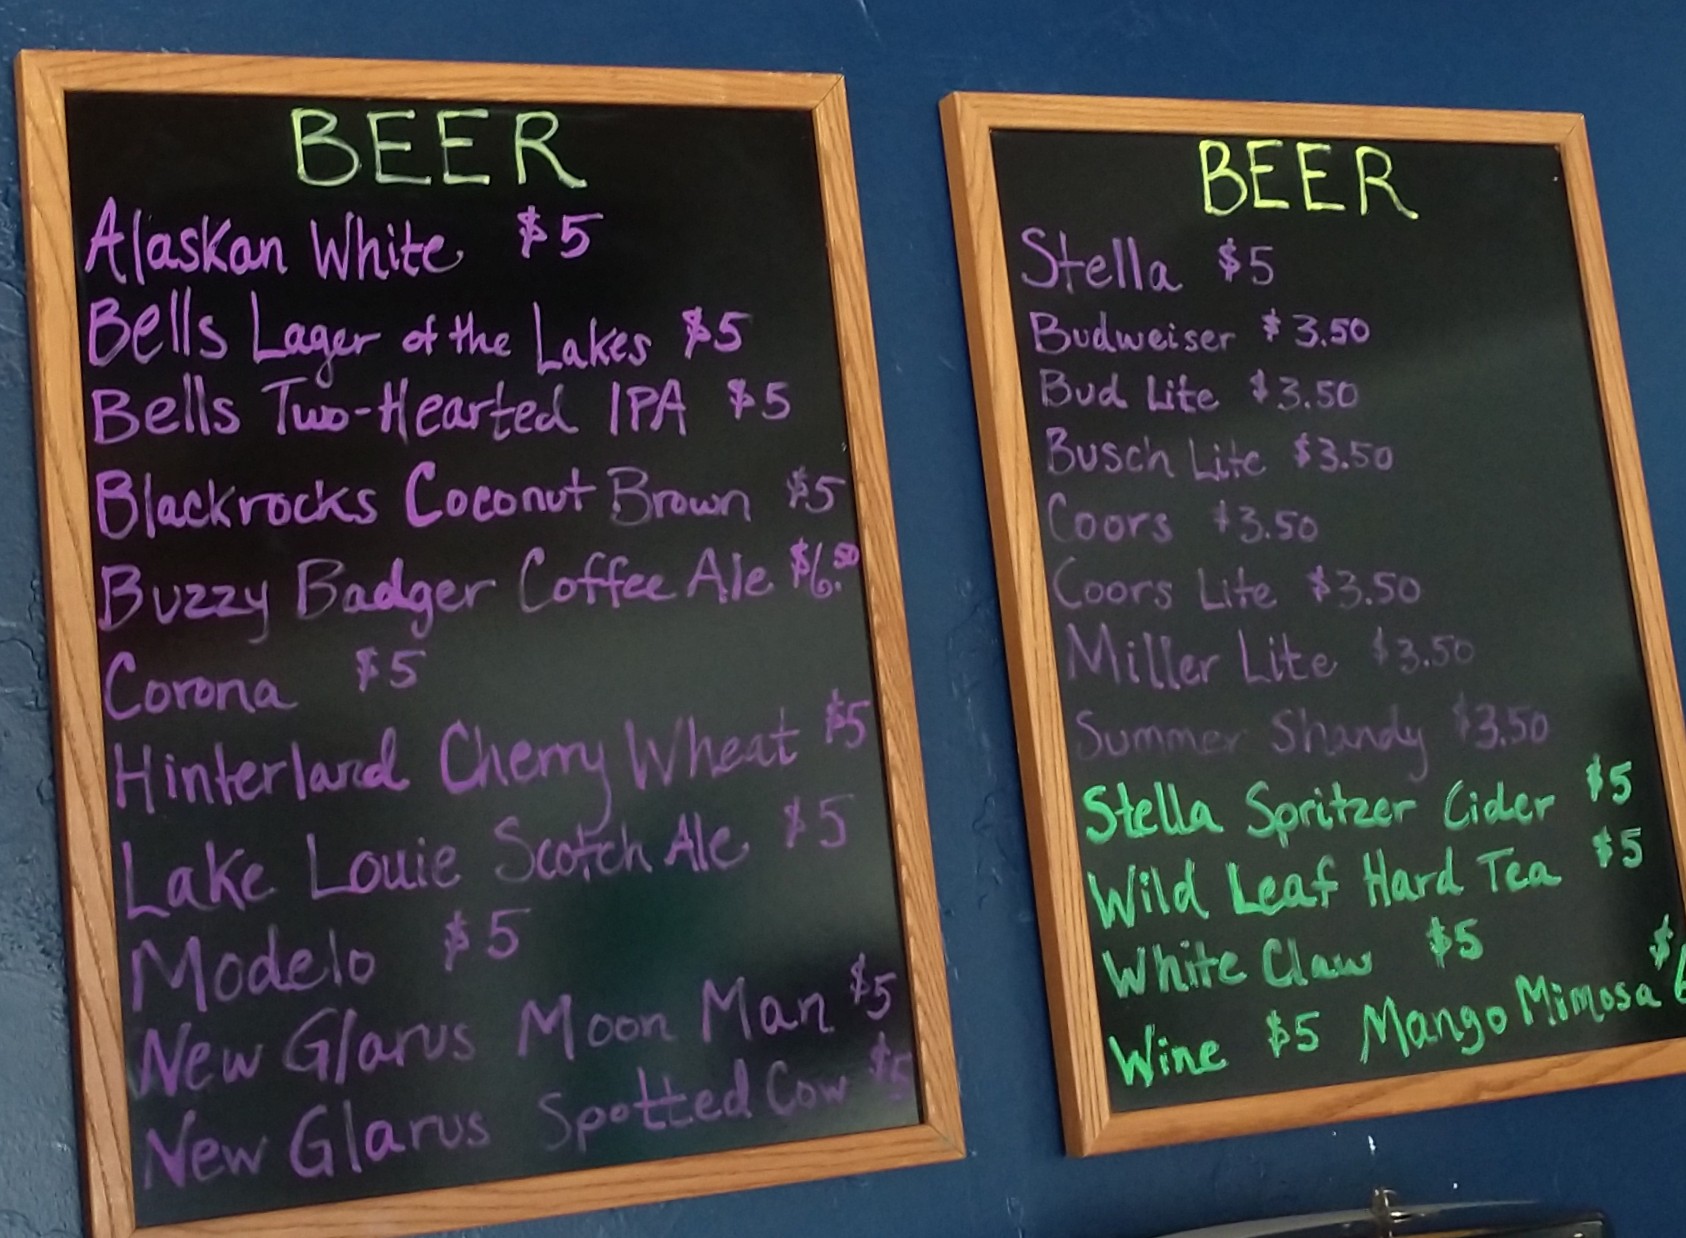 BEER
Alaskan White $5
Bells Lager of the Lakes $5
Bells Two-Hearted IPA $5
Blackrocks Coconut Brown $5
Buzzy Badger Coffee Ale $6.50
Corona $5
Hinterland Cherry Wheat $5
Lake Louie Scotch Ale $5
Modelo $5
New Glarus Moon Man $5
New Glarus Spotted Cow $5
BEER
Stella $5
Budweiser $3.50
Bud Lite $3.50
Busch Lite $3.50
Coors $3.50
Coors Lite $3.50
Miller Lite $3.50
Summer Shandy $3.50
Stella Spritzer Cider $5
Wild Leaf Hard Tea $5
White Claw $5
Wine $5 Mango Mimosa $